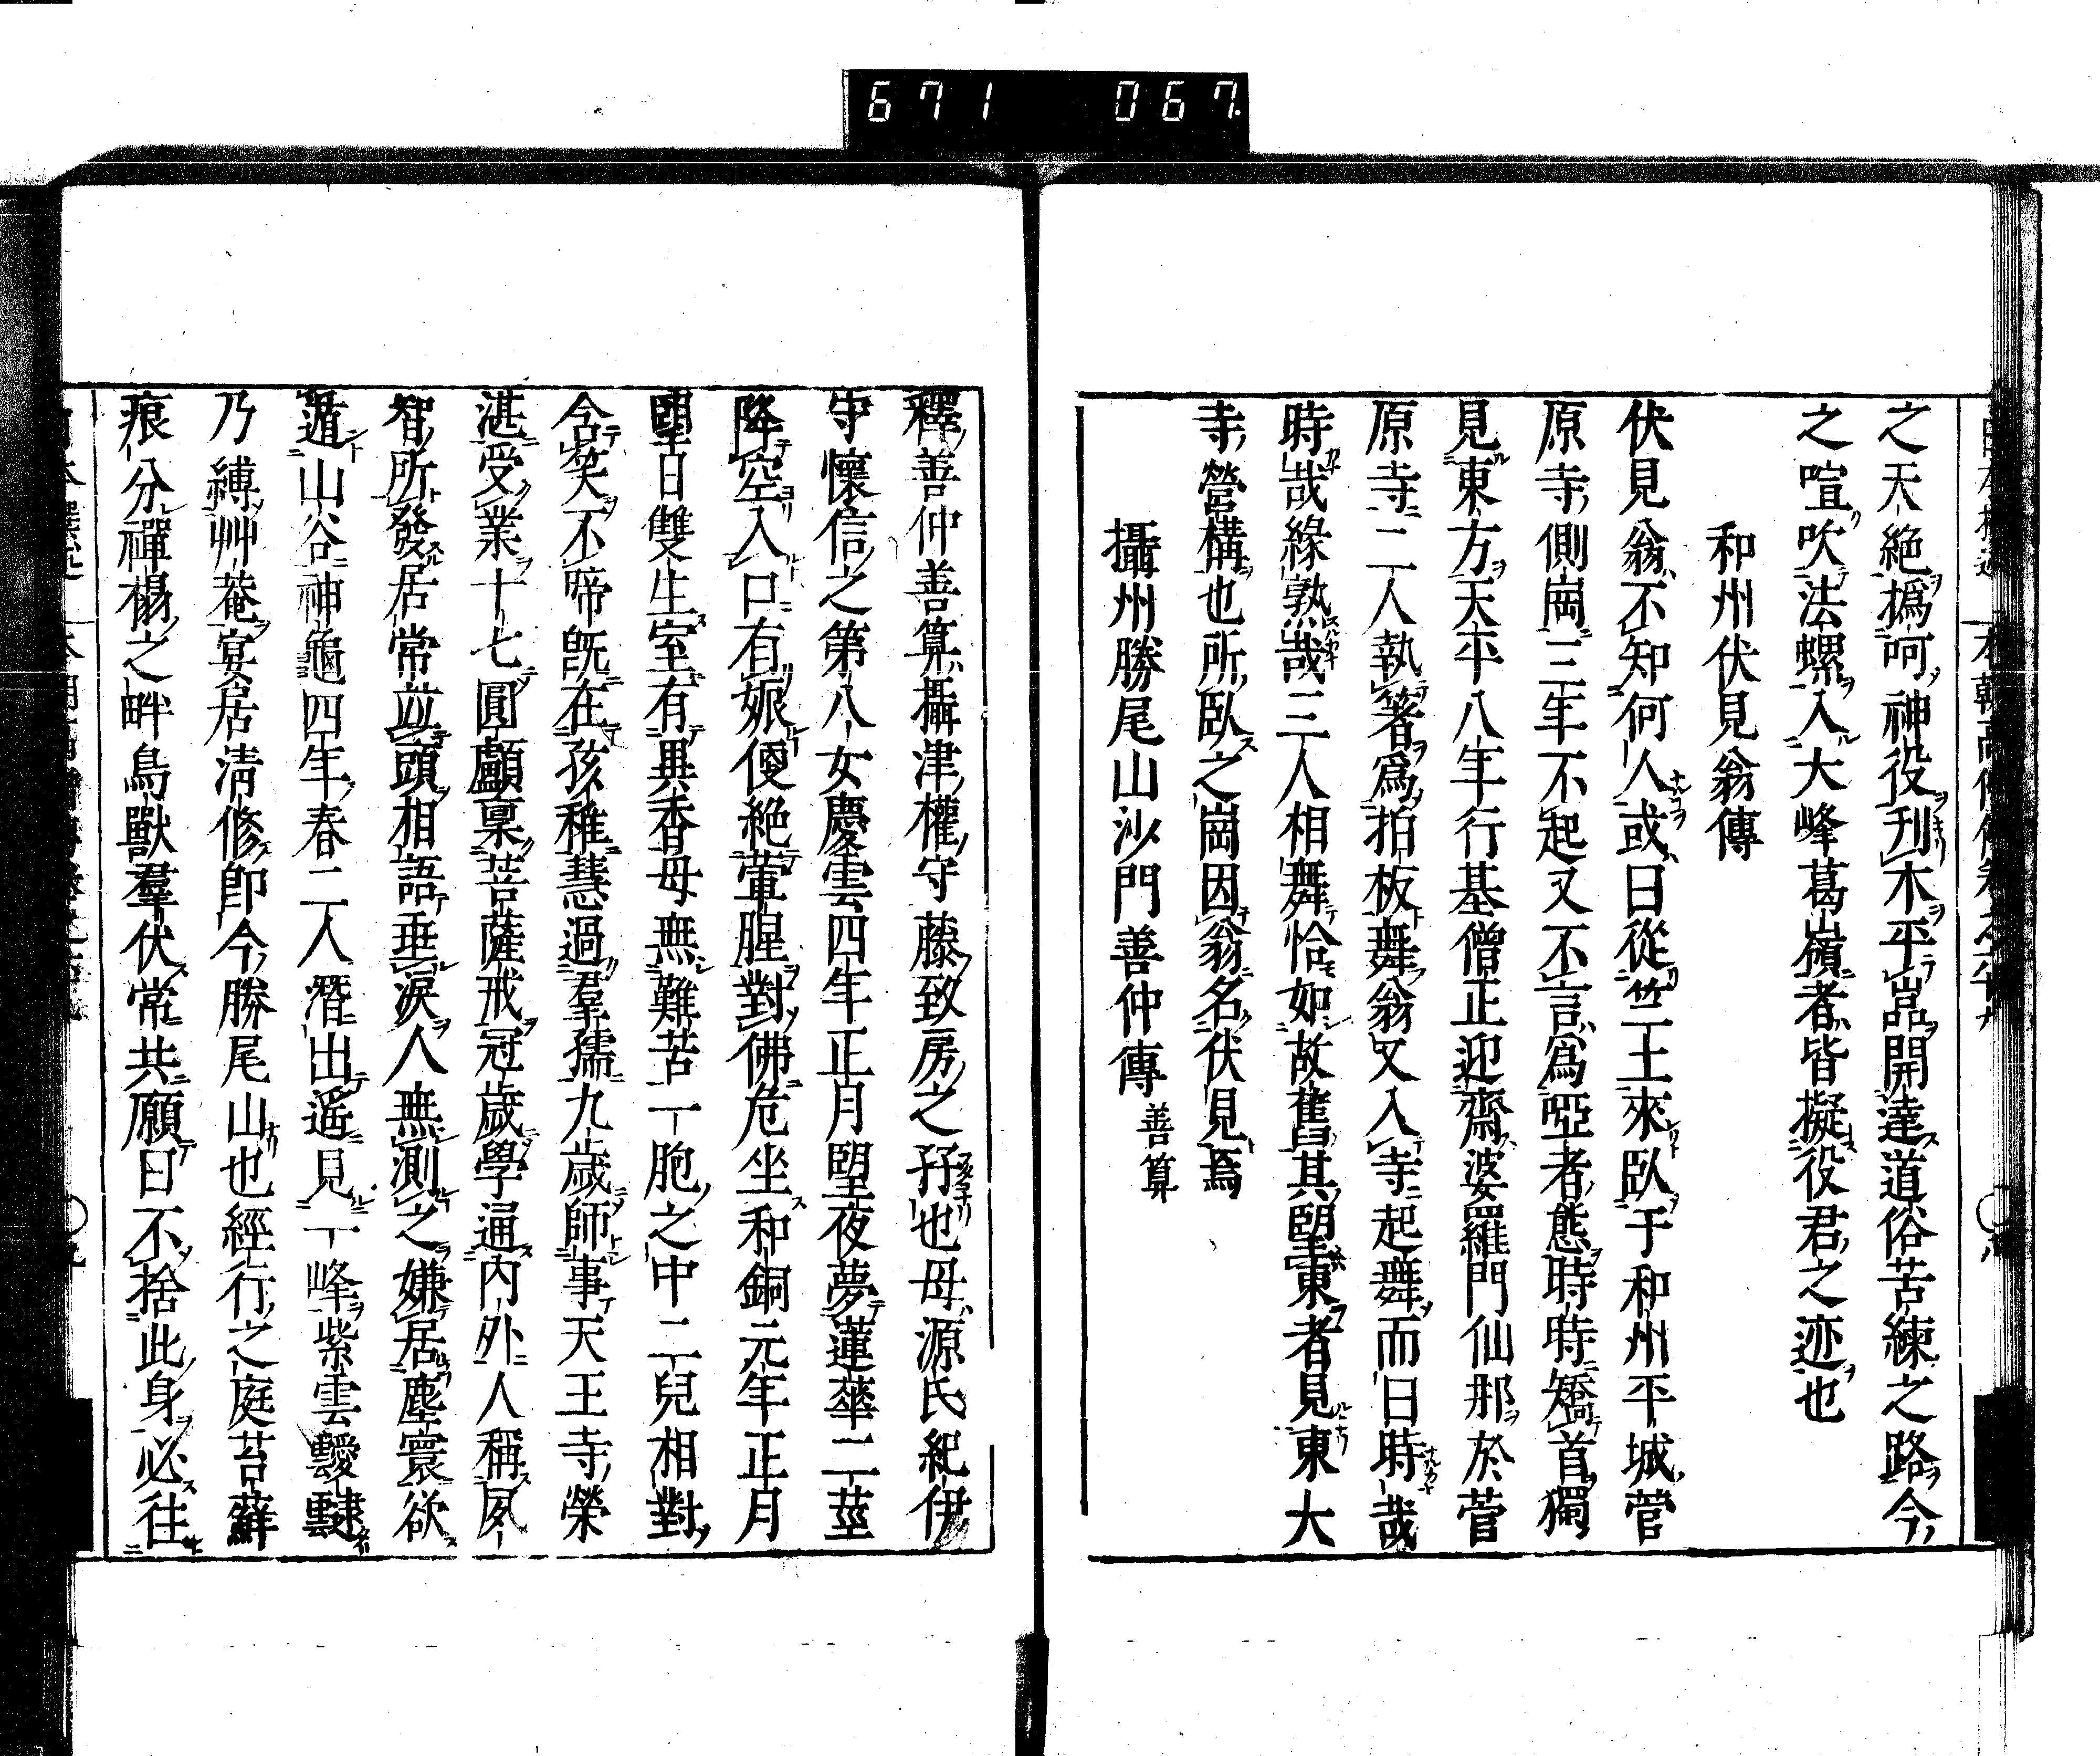 671 067
之天絶撝呵神役刊木平嵓開達道俗苦練之路今
之喧吹法螺入大峰葛嶺者皆擬役君之迹也
和州伏見翁傳
伏見翁不知何人或曰從竺土來臥于和州平城菅
原寺側崗三年不起又不言爲啞者態時時矯首獨
見東方天平八年行基僧正迎齋婆羅門仙那於菅
原寺二人執箸爲拍板舞翁又入寺起舞而曰時哉
時哉緣熟哉三人相舞恰如故舊其望東者見東大
寺營構也所臥之崗因翁名伏見焉
攝州勝尾山沙門善仲傳善算
釋善仲善算攝津權守藤致房之孖也母源氏紀伊
守懷信之第八女慶雲四年正月望夜夢蓮華二莖
降空入口有娠便絶葷腥對佛危坐和銅元年正月
望日雙生室有異香母無難苦一胞之中二兒相對
含笑不啼既在孩稚慧過羣孺九歳師事天王寺榮
湛受業十七圓顱稟菩薩戒冠歳學通内外人稱夙
智所發居常並頭相語垂淚人無測之嫌居塵寰欲
遁山谷神龜四年春二人潛出遥見一峰紫雲靉靆
乃縛艸菴宴居清修即今勝尾山也經行之庭苔蘚
痕分禪榻之畔鳥獸羣伏常共願曰不捨此身必往